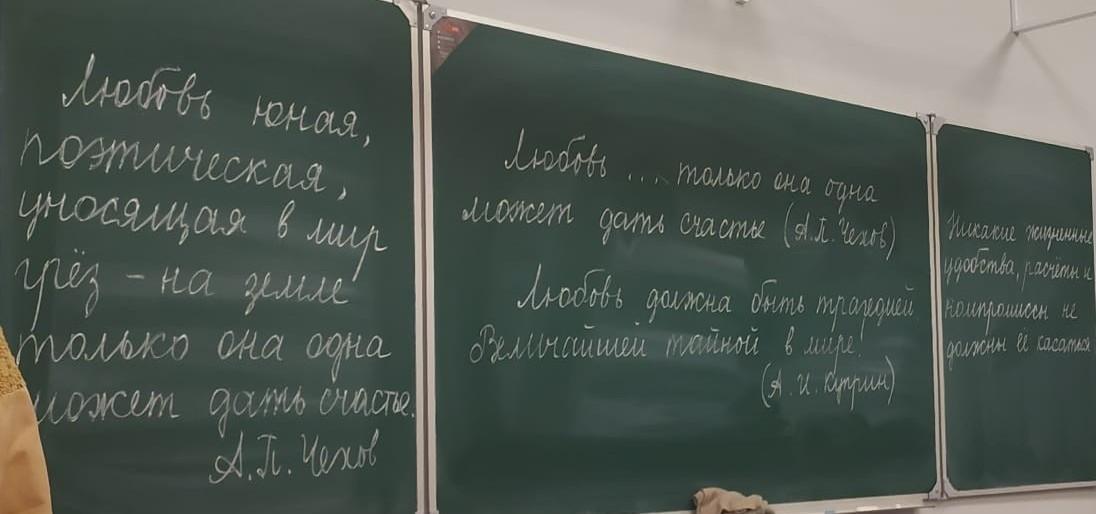 Любовь юная,
поэтическая,
уносящая в мир
грёз – на земле
только она одна
может дать счастье.
А.П. Чехов
Любовь ... только она одна
может дать счастье (А.П. Чехов)
Любовь должна быть трагедией.
Величайшей тайной в мире!
(А. И. Куприн)
Никакие жизненные
удобства, расчёты и
компромиссы не
должны её касаться